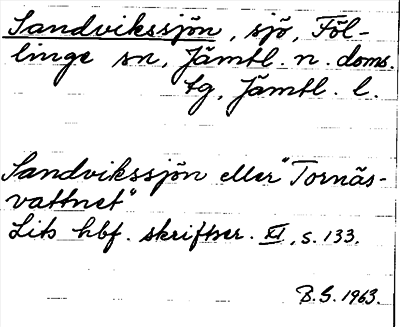 Sandvikssjön, sjö, Föl-
linge sn, Jämtl. n. doms.
tg, Jämtl. l.
Sandvikssjön eller "Tornäs-
vattnet"
Lits hbf. skrifter. XI, s. 133.
B.S. 1963.